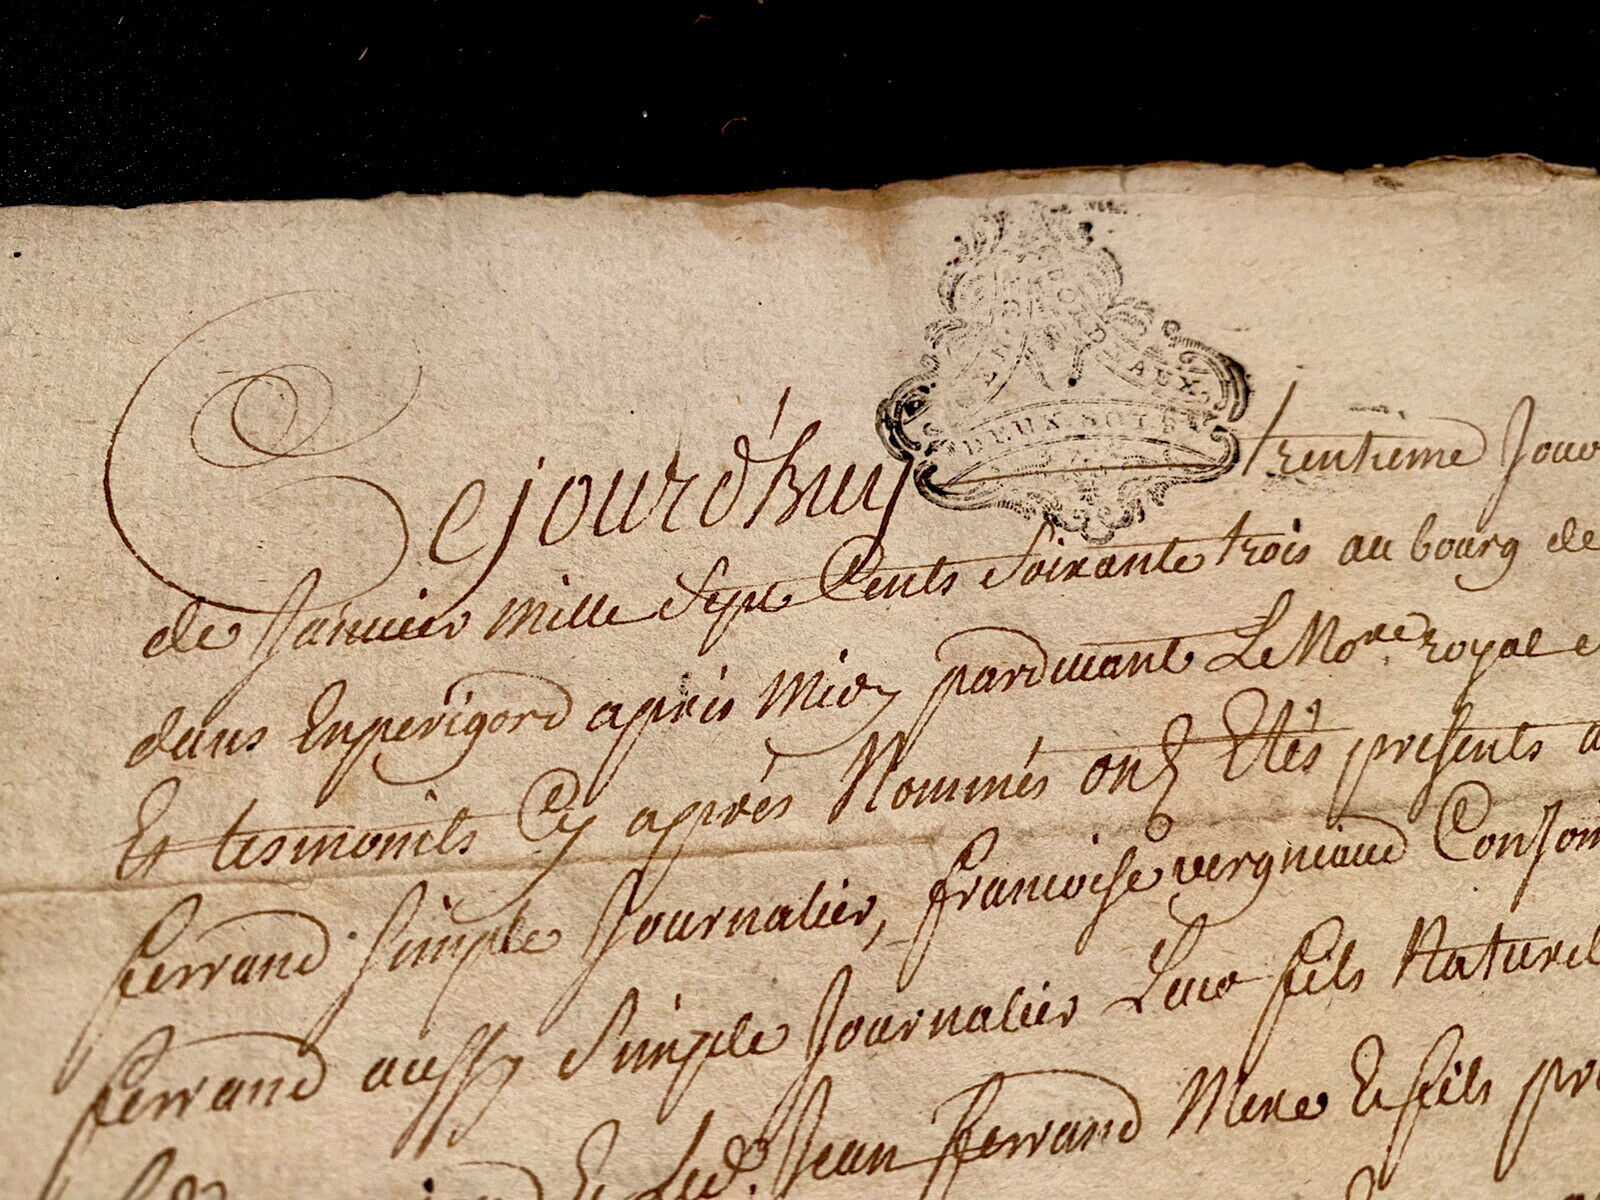 GEN. DE BORDEAUX
DEUX SOLS
Cejourd'huy trentieme Jour
de Janvier mille Sept Cents Soixante trois au bourg de
dans Enperigord après Midy pardevant Le No.re royal e
Et tesmoins Cy après Nommés ont Etés presents
ferrand simple Journalier, francoise vergniaud Conjoin
ferrand aussy Simple Journalier Leur fils Naturel
Et Led. Jean ferrand Mere Et fils pr